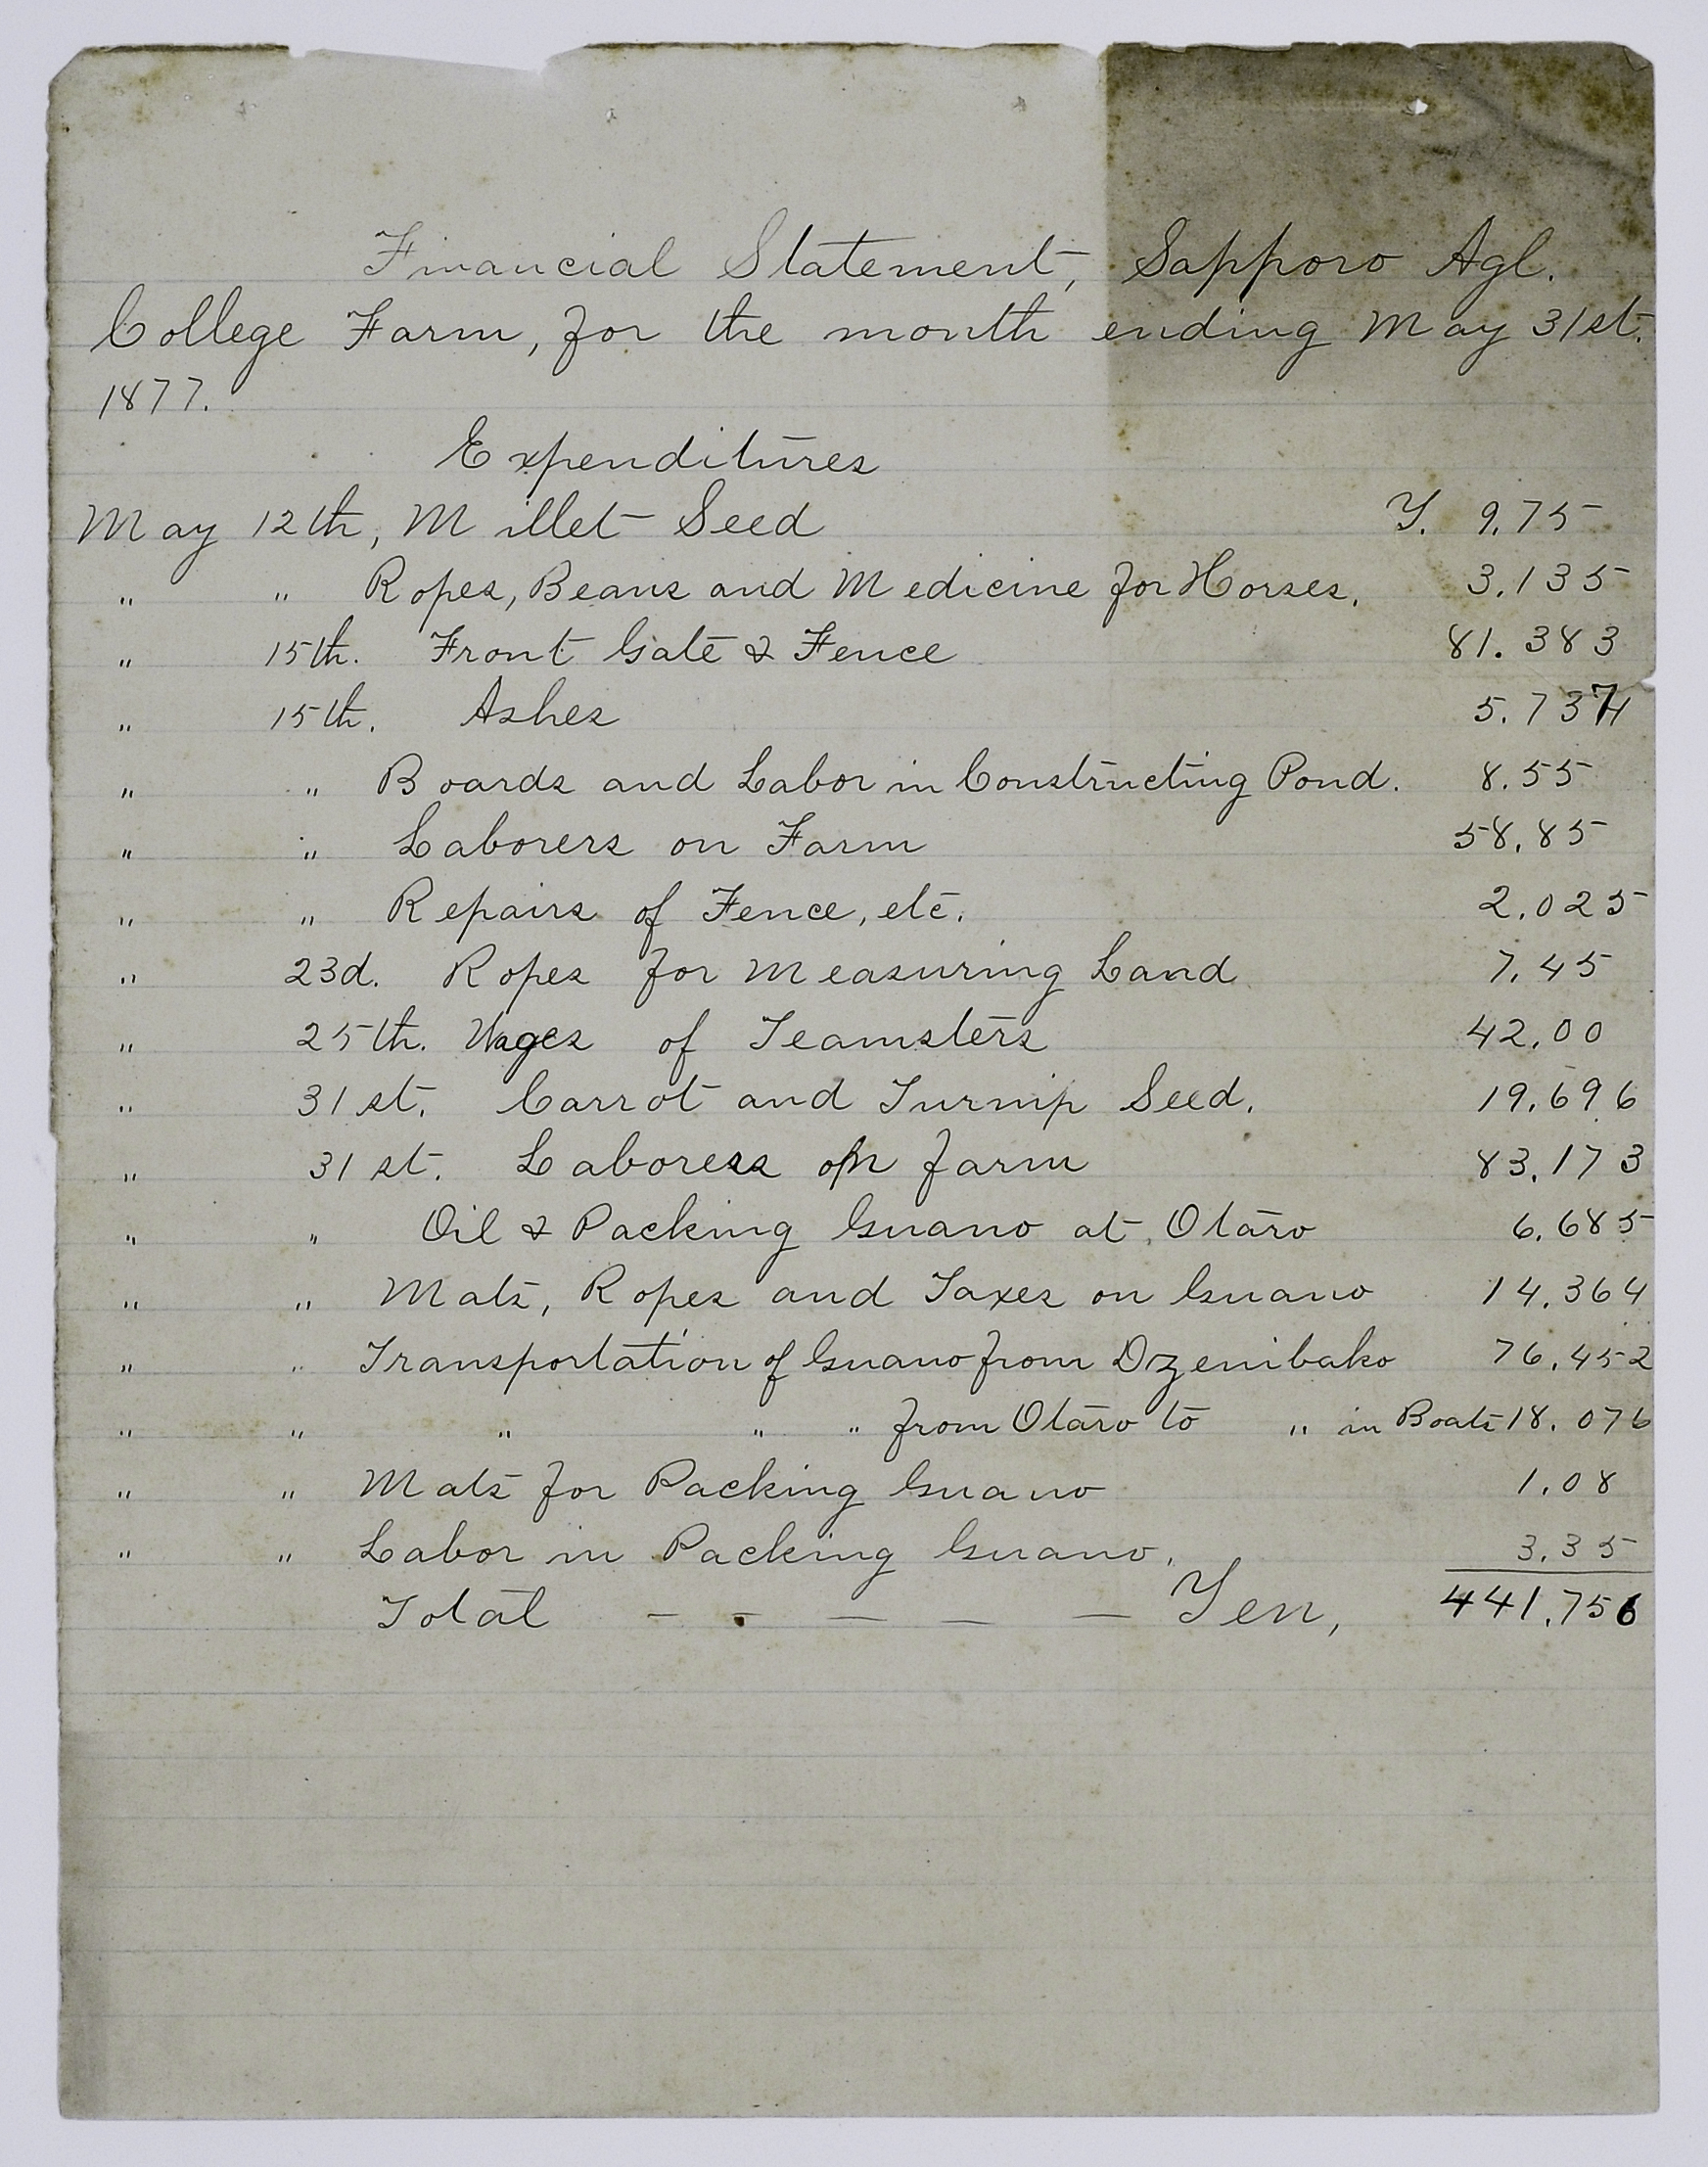 Financial Statement, Sapporo Agl.
College Farm, for the month ending May 31st.
1877.
Expenditures
May 12th, Millet Seed Y. 9.75
" " Ropes, Beans and Medicine for Horses. 3.135
" 15th. Front Gate & Fence 81.383
" 15th. Ashes 5.737
" " Boards and Labor in Constructing Pond. 8.55
" " Laborers on Farm 58.85
" " Repairs of Fence, etc. 2.025
" 23d. Ropes for Measuring Land 7.45
" 25th. Wages of Teamsters 42.00
" 31st. Carrot and Turnip Seed. 19.696
" 31st. Laborers on farm 83.173
" " Oil & Packing Guano at Otaro 6.685
" " Mats, Ropes and Taxes on Guano 14.364
" " Transportation of Guano from Dzenibako 76.452
" " " " " from Otaro to " in Boats 18.076
" " Mats for Packing Guano 1.08
" " Labor in Packing Guano. 3.35
Total — — — — — Yen, 441.756